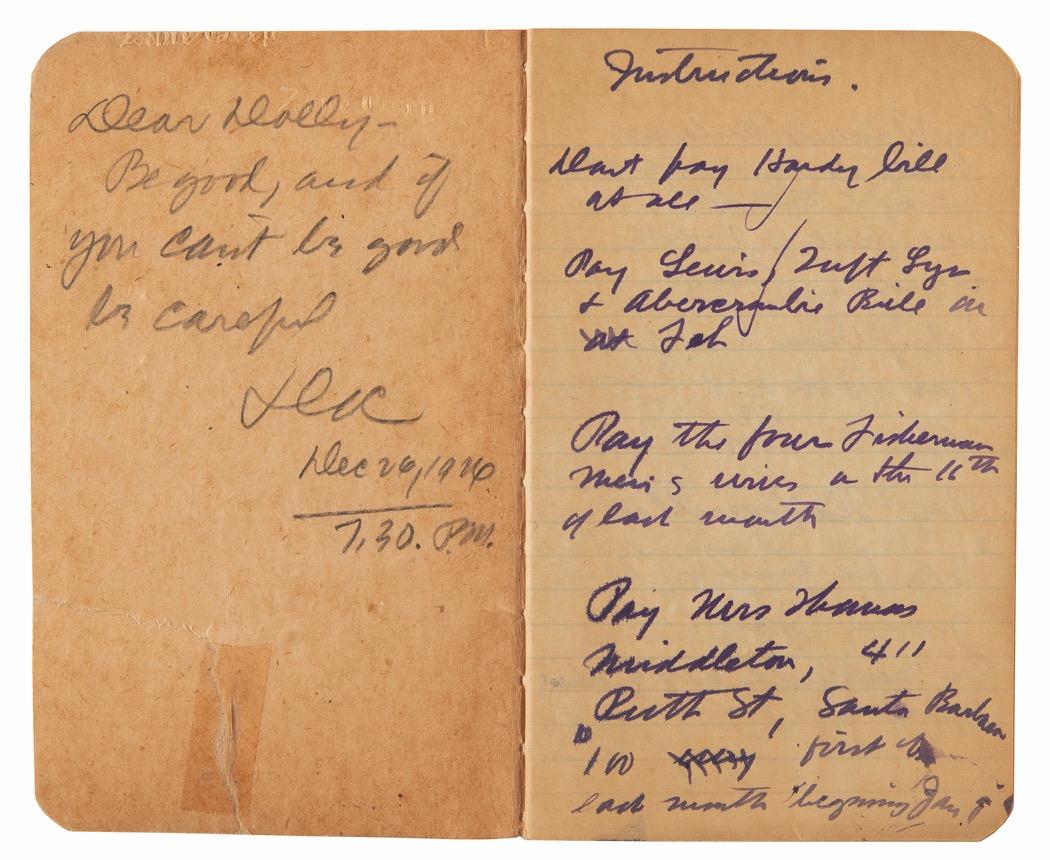 Dear Dolly—
Be good, and if
you can't be good
be careful
Doc
Dec 26, 1926
7.30. P.M.
Instructions.
Dont pay Hardy bill
at all —
Pay Lewis / Tuft Lyon
& Abercrombie Bill in
Feb
Pay the four Fisherman
wives on the 11th
of each month
Pay Mrs Thomas
Middleton, 411
Ruth St, Santa Barbara
100 first of
each month begining Jan